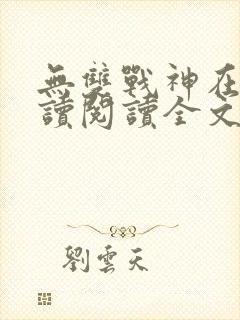 無雙戰神在
讀閱讀全文
劉雲天